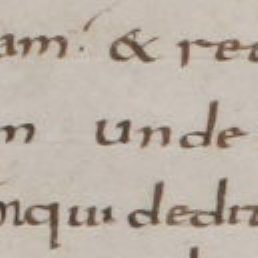 am. & rec
n unde
nqui dedit